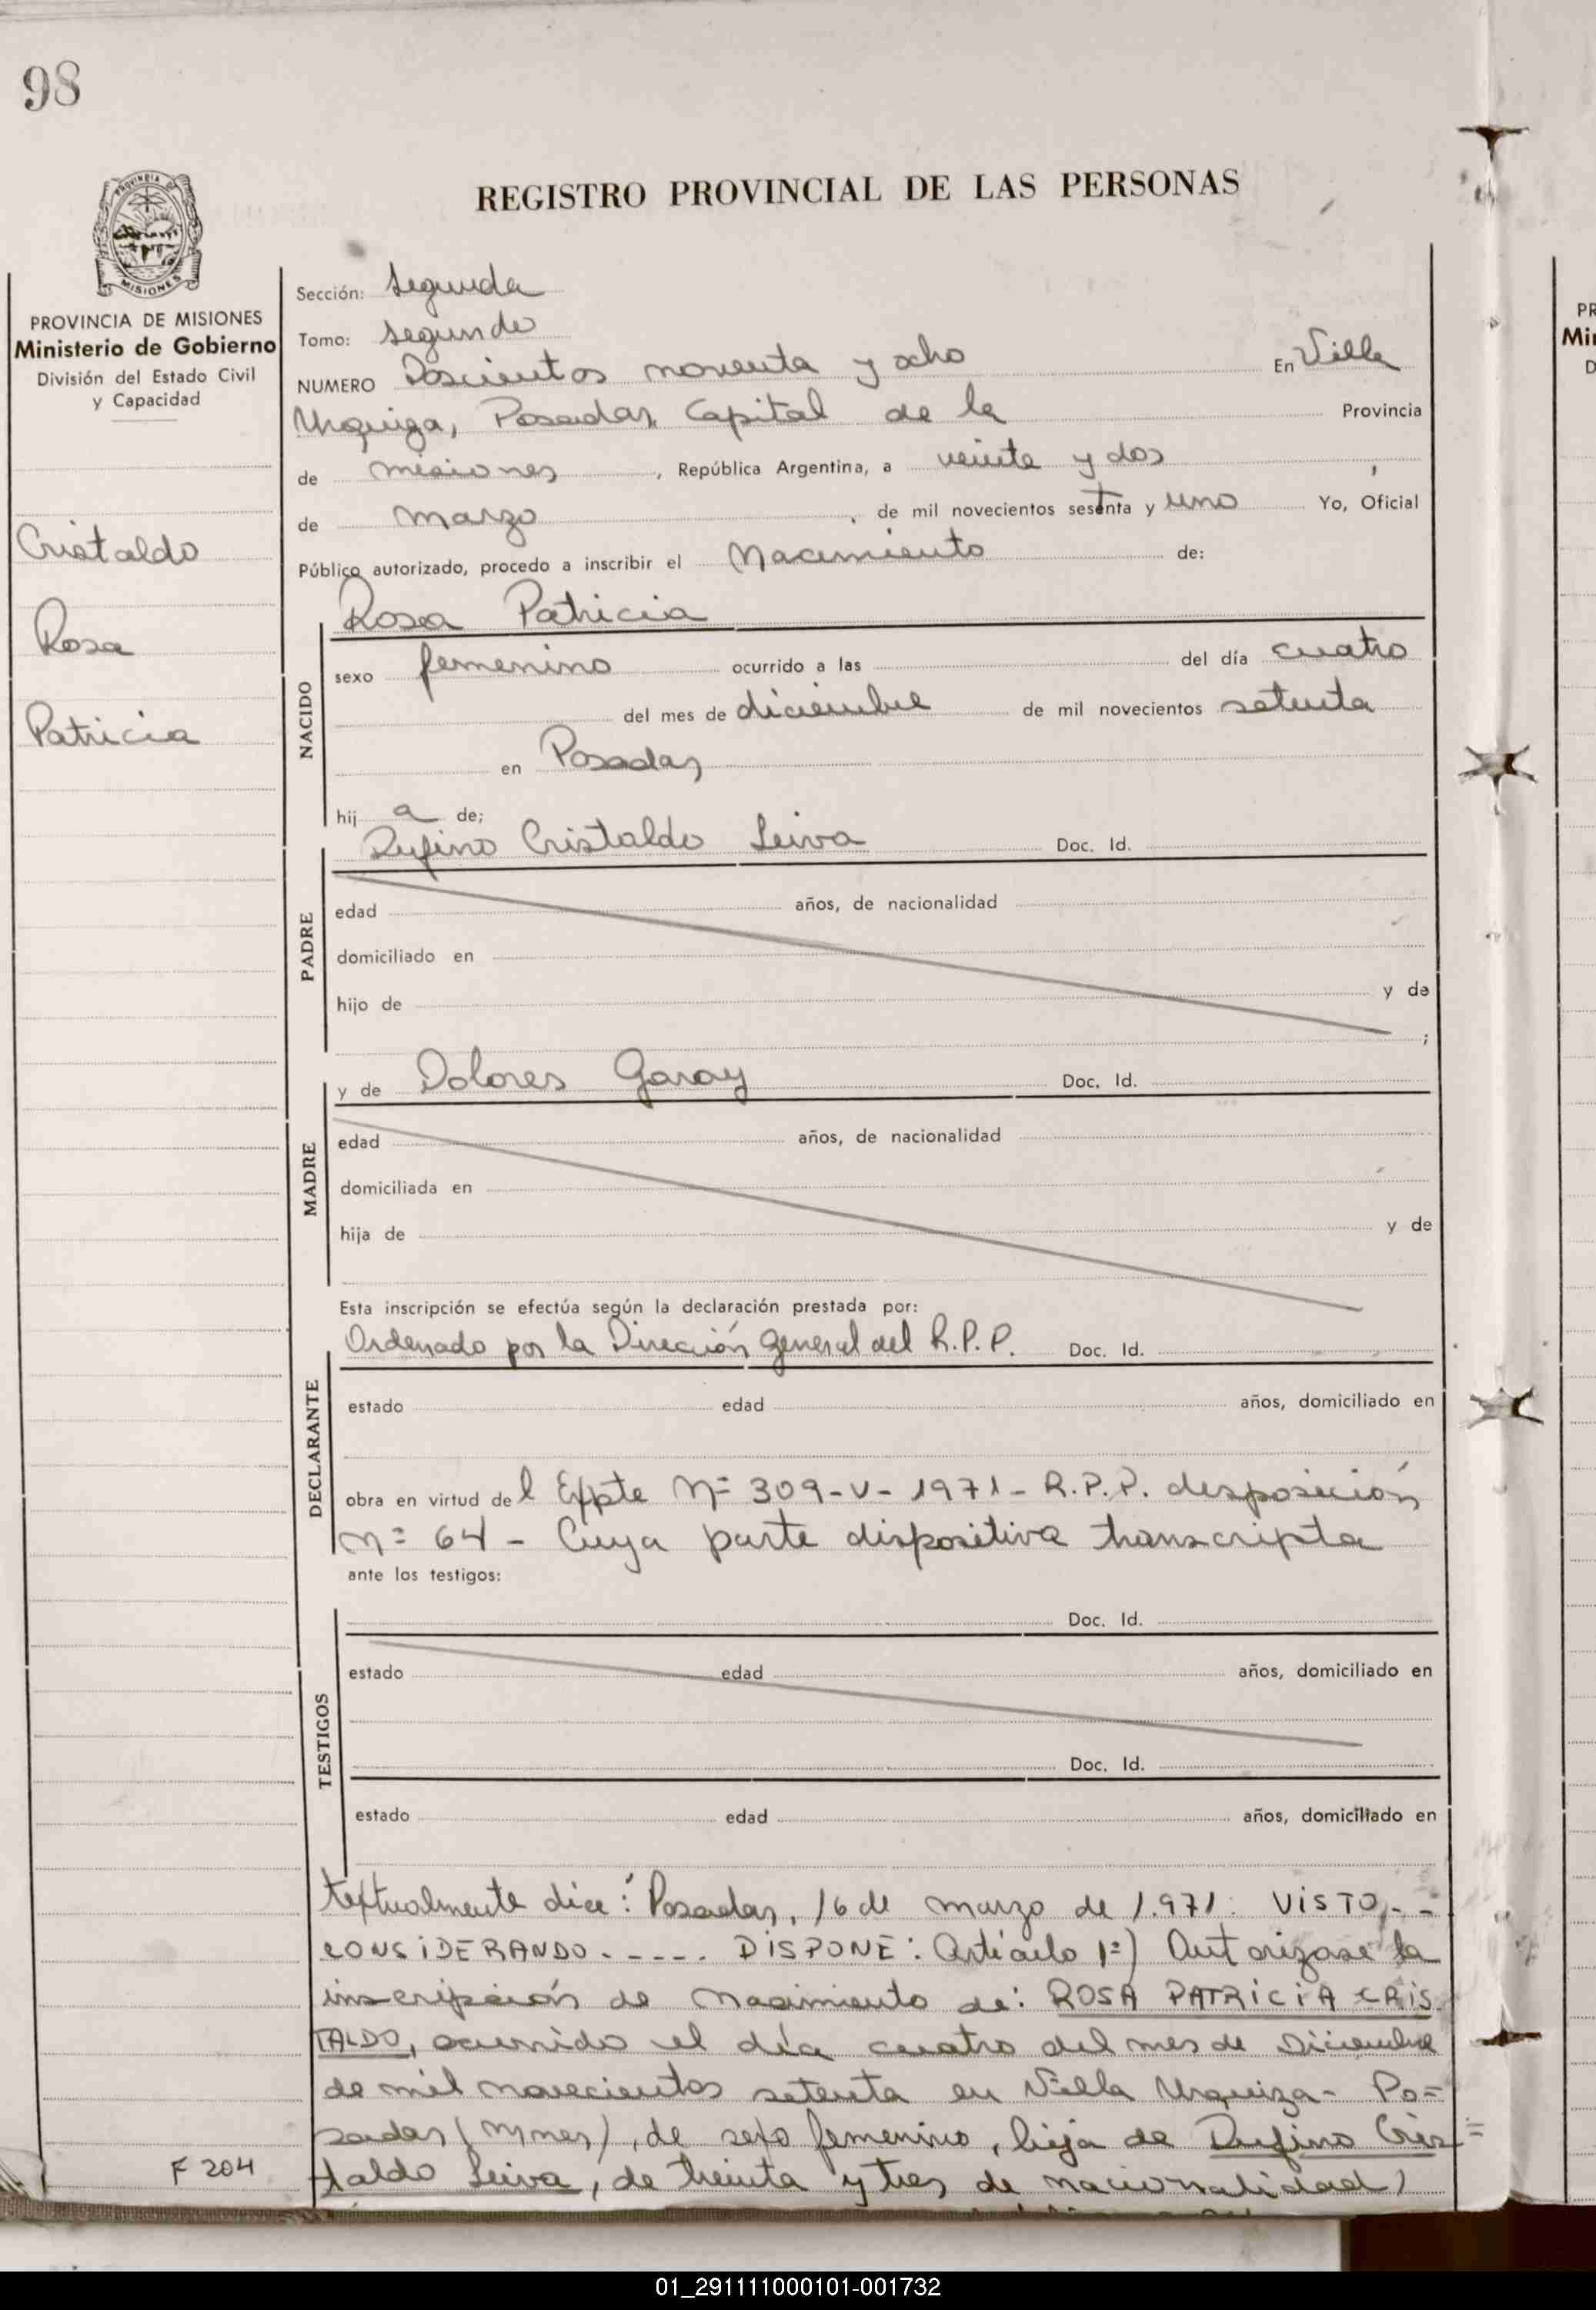 98
REGISTRO PROVINCIAL DE LAS PERSONAS
PROVINCIA DE MISIONES
Ministerio de Gobierno
División del Estado Civil
y Capacidad
Cristaldo
Rosa
Patricia
Sección: Segunda
Tomo: Segundo
NUMERO Doscientos noventa y ocho En Villa
Urquiza, Posadas, Capital de la Provincia
de misiones, República Argentina, a veinte y dos
de marzo, de mil novecientos setenta y uno Yo, Oficial
Público autorizado, procedo a inscribir el Nacimiento de:
Rosa Patricia
NACIDO
sexo femenino ocurrido a las del día cuatro
del mes de diciembre de mil novecientos setenta
en Posadas
hij a de;
Rufino Cristaldo Leiva Doc. Id.
PADRE
edad años, de nacionalidad
domiciliado en
hijo de y de
;
y de Dolores Garay Doc. Id.
MADRE
edad años, de nacionalidad
domiciliada en
hija de y de
Esta inscripción se efectúa según la declaración prestada por:
Ordenado por la Dirección General del R.P.P. Doc. Id.
DECLARANTE
estado edad años, domiciliado en
obra en virtud del Expte Nº 309-V-1971- R.P.P. desposición
Nº 64 - Cuya parte dispositiva transcripta
ante los testigos:
TESTIGOS
Doc. Id.
estado edad años, domiciliado en
Doc. Id.
estado edad años, domiciliado en
textualmente dice: Posadas, 16 de marzo de 1.971: VISTO,--
CONSIDERANDO.----. DISPONE: Artículo 1º) Autorizase la
inscripción de nacimiento de: ROSA PATRICIA CRIS
TALDO, ocurrido el día cuatro del mes de Diciembre
de mil novecientos setenta en Villa Urquiza- Po=
sadas (Mnes), de sexo femenino, hija de Rufino Cris=
taldo Leiva, de treinta y tres de nacionalidad)
F 204
01_291111000101-001732